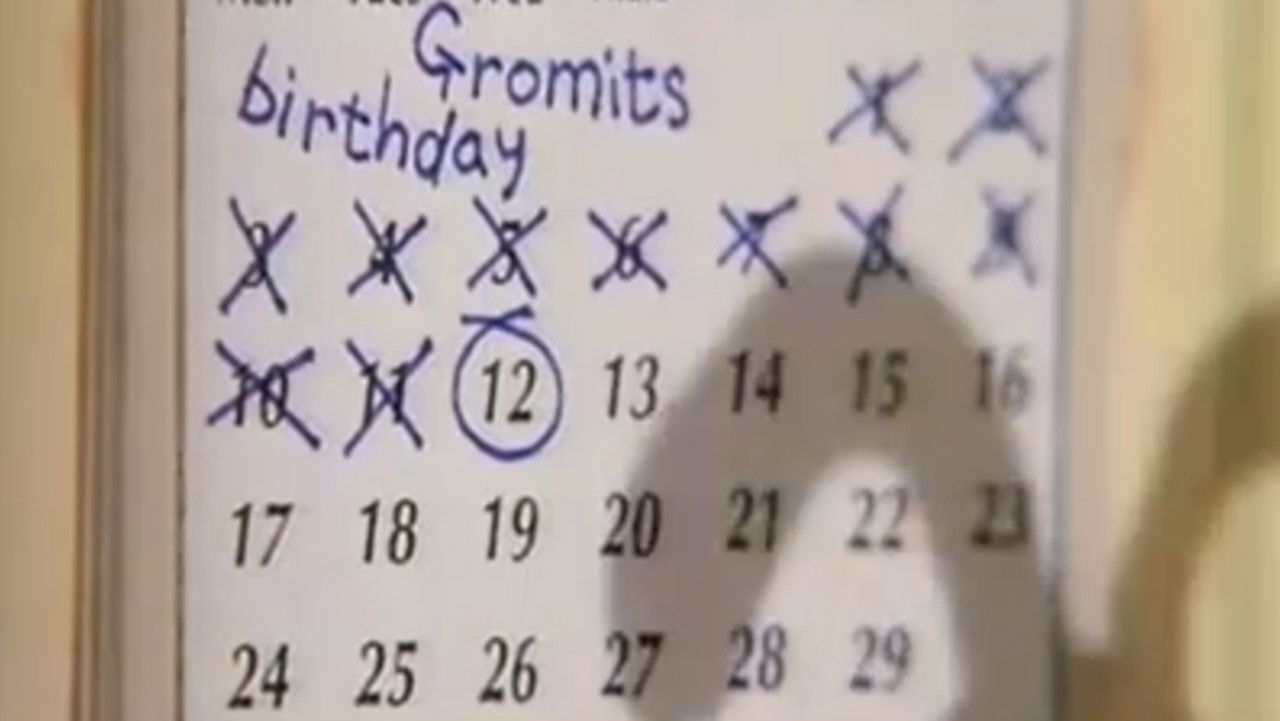 Mon Tues Wed
Gromits
birthday
1 2
3 4 5 6 7 8 9
10 11 12 13 14 15 16
17 18 19 20 21 22 23
24 25 26 27 28 29